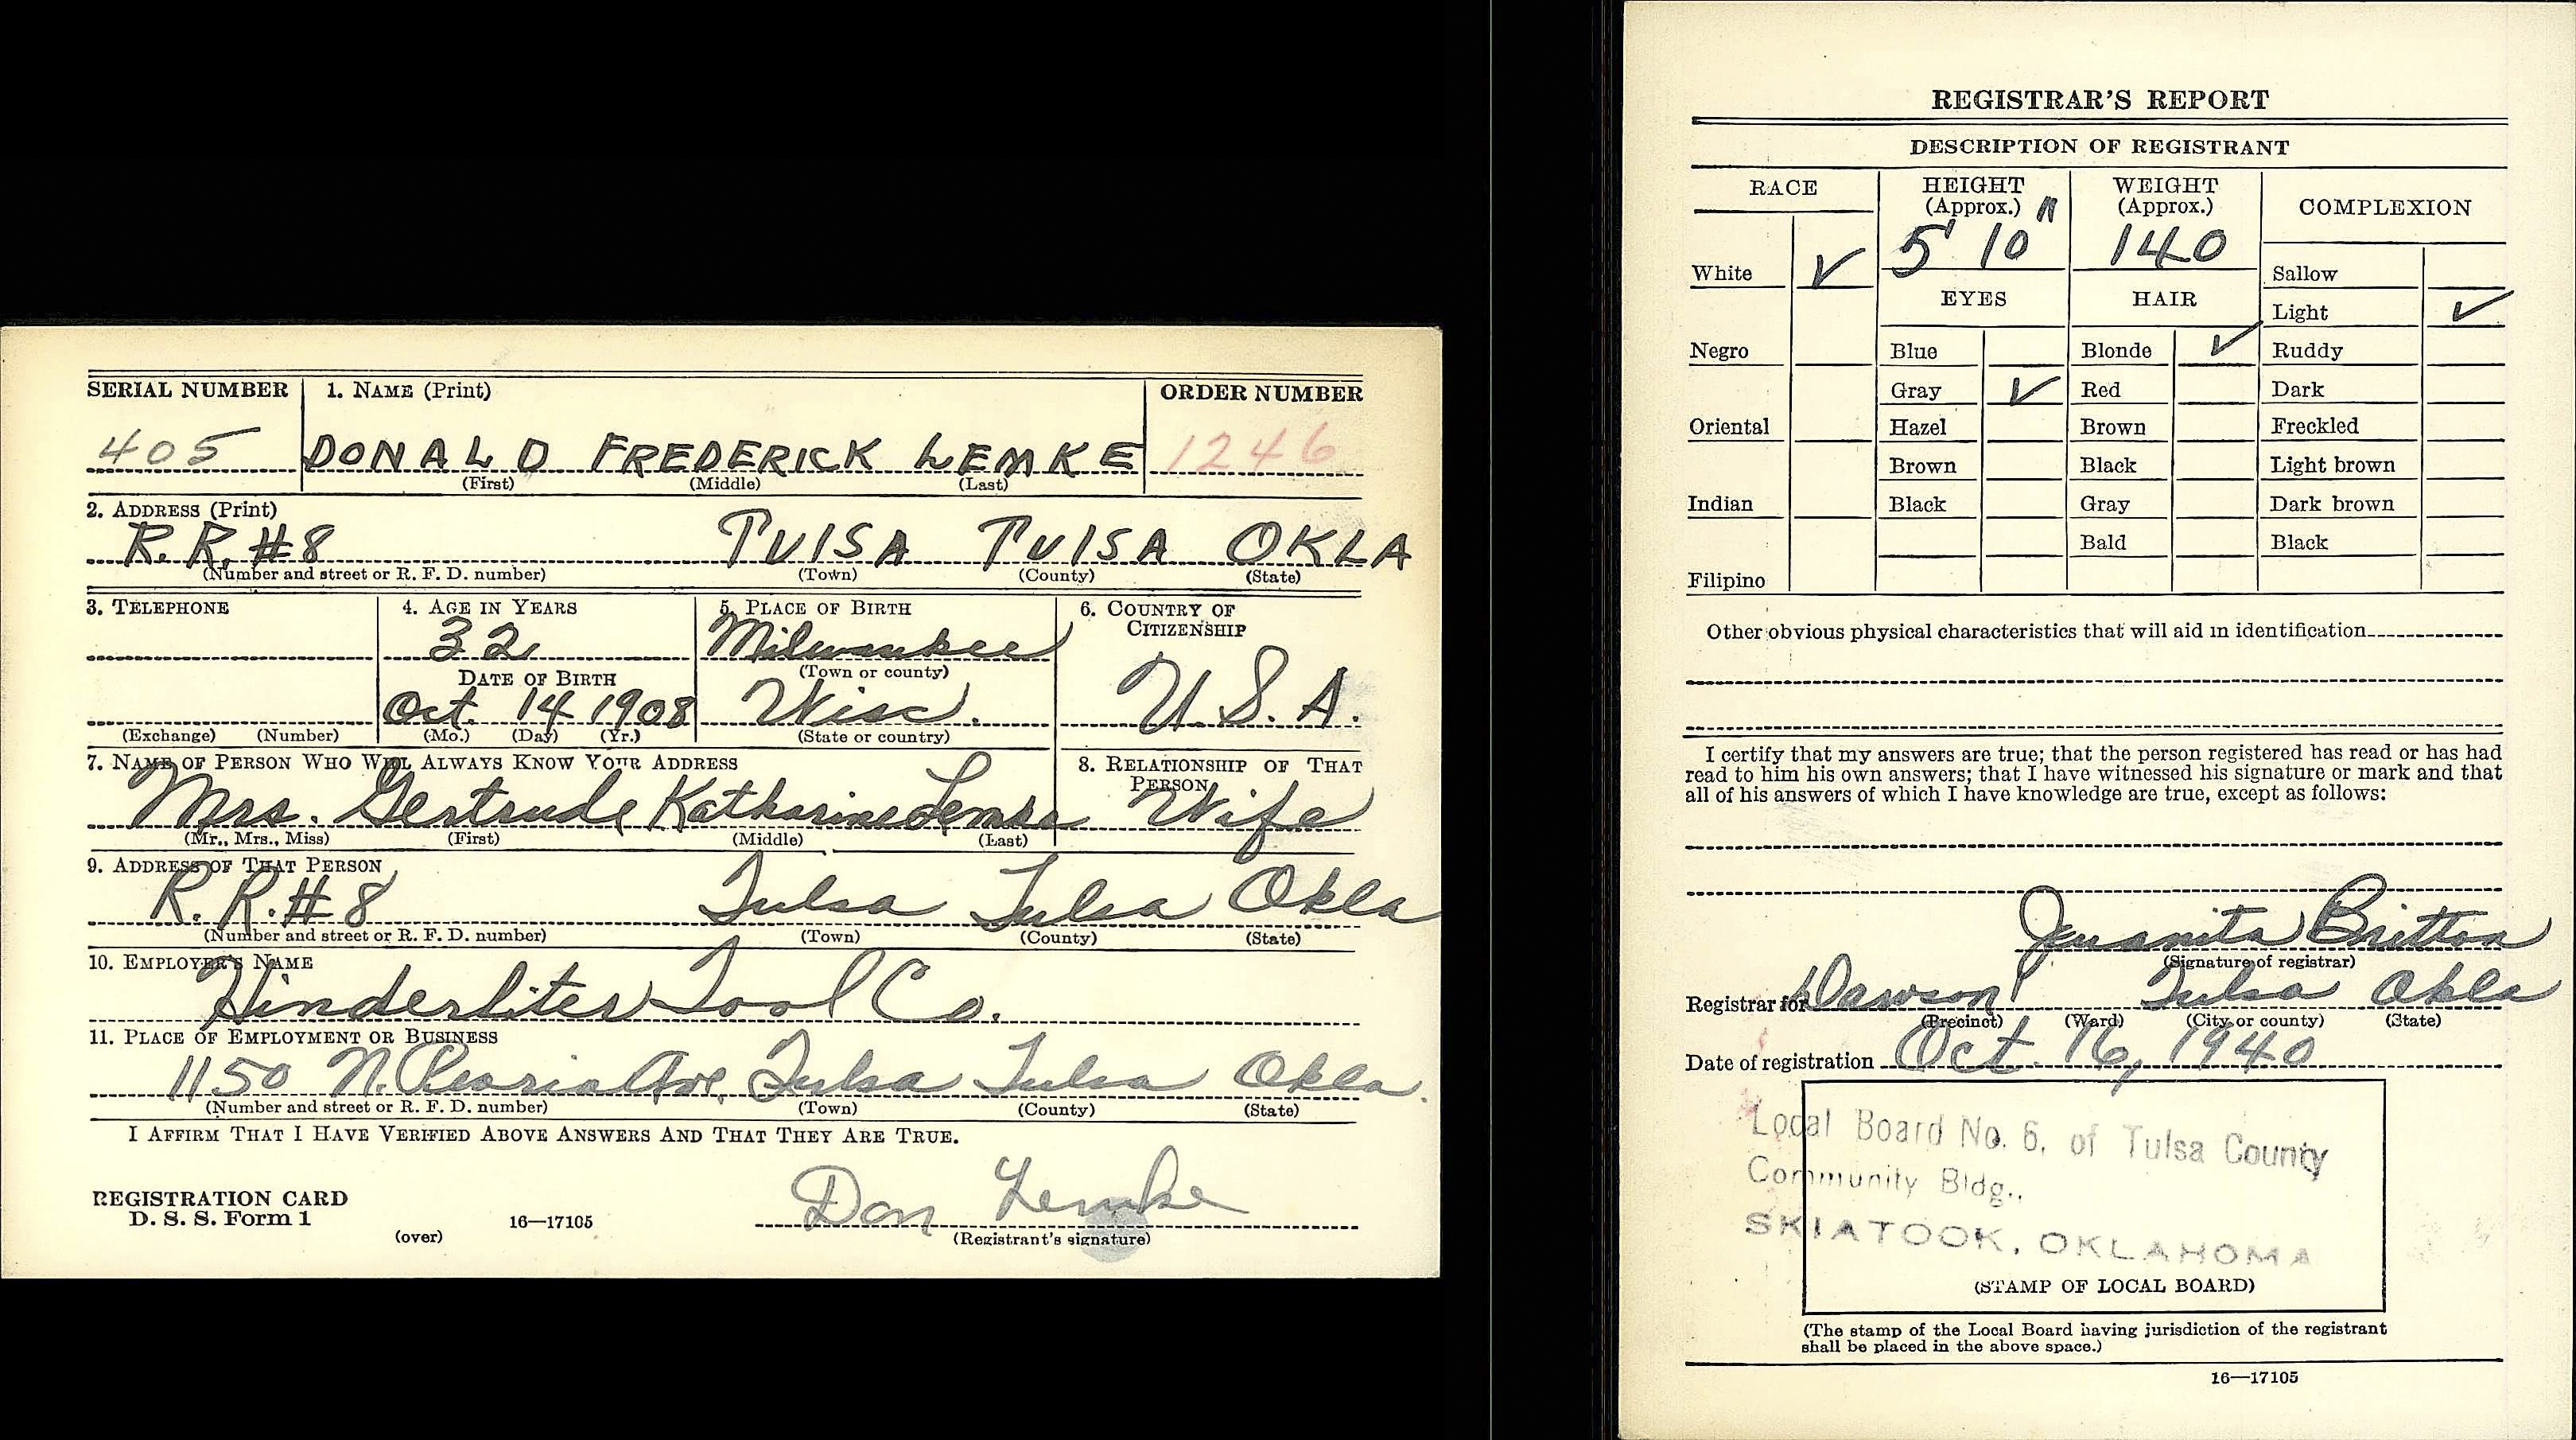 SERIAL NUMBER 1. NAME (Print) ORDER NUMBER
405 DONALD FREDERICK LEMKE 1246
(First) (Middle) (Last)
2. ADDRESS (Print)
R.R. #8 TULSA TULSA OKLA
(Number and street or R. F. D. number) (Town) (County) (State)
3. TELEPHONE 4. AGE IN YEARS 5. PLACE OF BIRTH 6. COUNTRY OF
CITIZENSHIP
32 Milwaukee
(Town or county)
DATE OF BIRTH
Oct. 14 1908 Wisc. U.S.A.
(Exchange) (Number) (Mo.) (Day) (Yr.) (State or country)
7. NAME OF PERSON WHO WILL ALWAYS KNOW YOUR ADDRESS 8. RELATIONSHIP OF THAT
PERSON
Mrs. Gertrude Katharine Lemke Wife
(Mr., Mrs., Miss) (First) (Middle) (Last)
9. ADDRESS OF THAT PERSON
R.R. #8 Tulsa Tulsa Okla
(Number and street or R. F. D. number) (Town) (County) (State)
10. EMPLOYER'S NAME
Hinderliter Tool Co.
11. PLACE OF EMPLOYMENT OR BUSINESS
1150 N. Peoria Ave. Tulsa Tulsa Okla.
(Number and street or R. F. D. number) (Town) (County) (State)
I AFFIRM THAT I HAVE VERIFIED ABOVE ANSWERS AND THAT THEY ARE TRUE.
Don Lemke
REGISTRATION CARD
D. S. S. Form 1 16—17105
(over) (Registrant's signature)
REGISTRAR'S REPORT
DESCRIPTION OF REGISTRANT
RACE HEIGHT WEIGHT COMPLEXION
(Approx.) (Approx.)
5' 10" 140
White ✓ Sallow
EYES HAIR
Light ✓
Negro Blue Blonde ✓ Ruddy
Gray ✓ Red Dark
Oriental Hazel Brown Freckled
Brown Black Light brown
Indian Black Gray Dark brown
Bald Black
Filipino
Other obvious physical characteristics that will aid in identification
I certify that my answers are true; that the person registered has read or has had
read to him his own answers; that I have witnessed his signature or mark and that
all of his answers of which I have knowledge are true, except as follows:
Juanita Britton
(Signature of registrar)
Registrar for Dawson Tulsa Okla
(Precinct) (Ward) (City or county) (State)
Date of registration Oct. 16, 1940
Local Board No. 6, of Tulsa County
Community Bldg.,
SKIATOOK, OKLAHOMA
(STAMP OF LOCAL BOARD)
(The stamp of the Local Board having jurisdiction of the registrant
shall be placed in the above space.)
16—17105